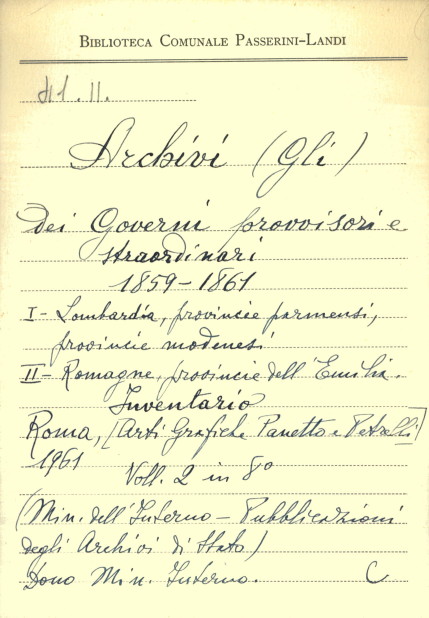 BIBLIOTECA COMUNALE PASSERINI-LANDI
Archivi (Gli)
dei Governi provvisori e
straordinari
1859-1861
I- Lombardia, provincie parmensi,
provincie modenesi
II- Romagne, provincie dell'Emilia.
Inventario
Roma, [Arti Grafiche Panetto e Petrelli]
1961
Voll. 2 in 8º
(Min. dell'Interno - Pubblicazioni
degli Archivi di Stato)
Dono Min. Interno. C